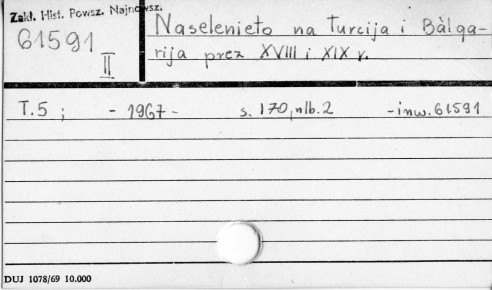 Zakł. Hist. Powsz. Najnowsz.
61591
II
Naselenieto na Turcija i Bàlga-
rija prez XVIII i XIX v.
T. 5 ; - 1967 - s. 170, nlb. 2 - inw. 61591
DUJ 1078/69 10.000